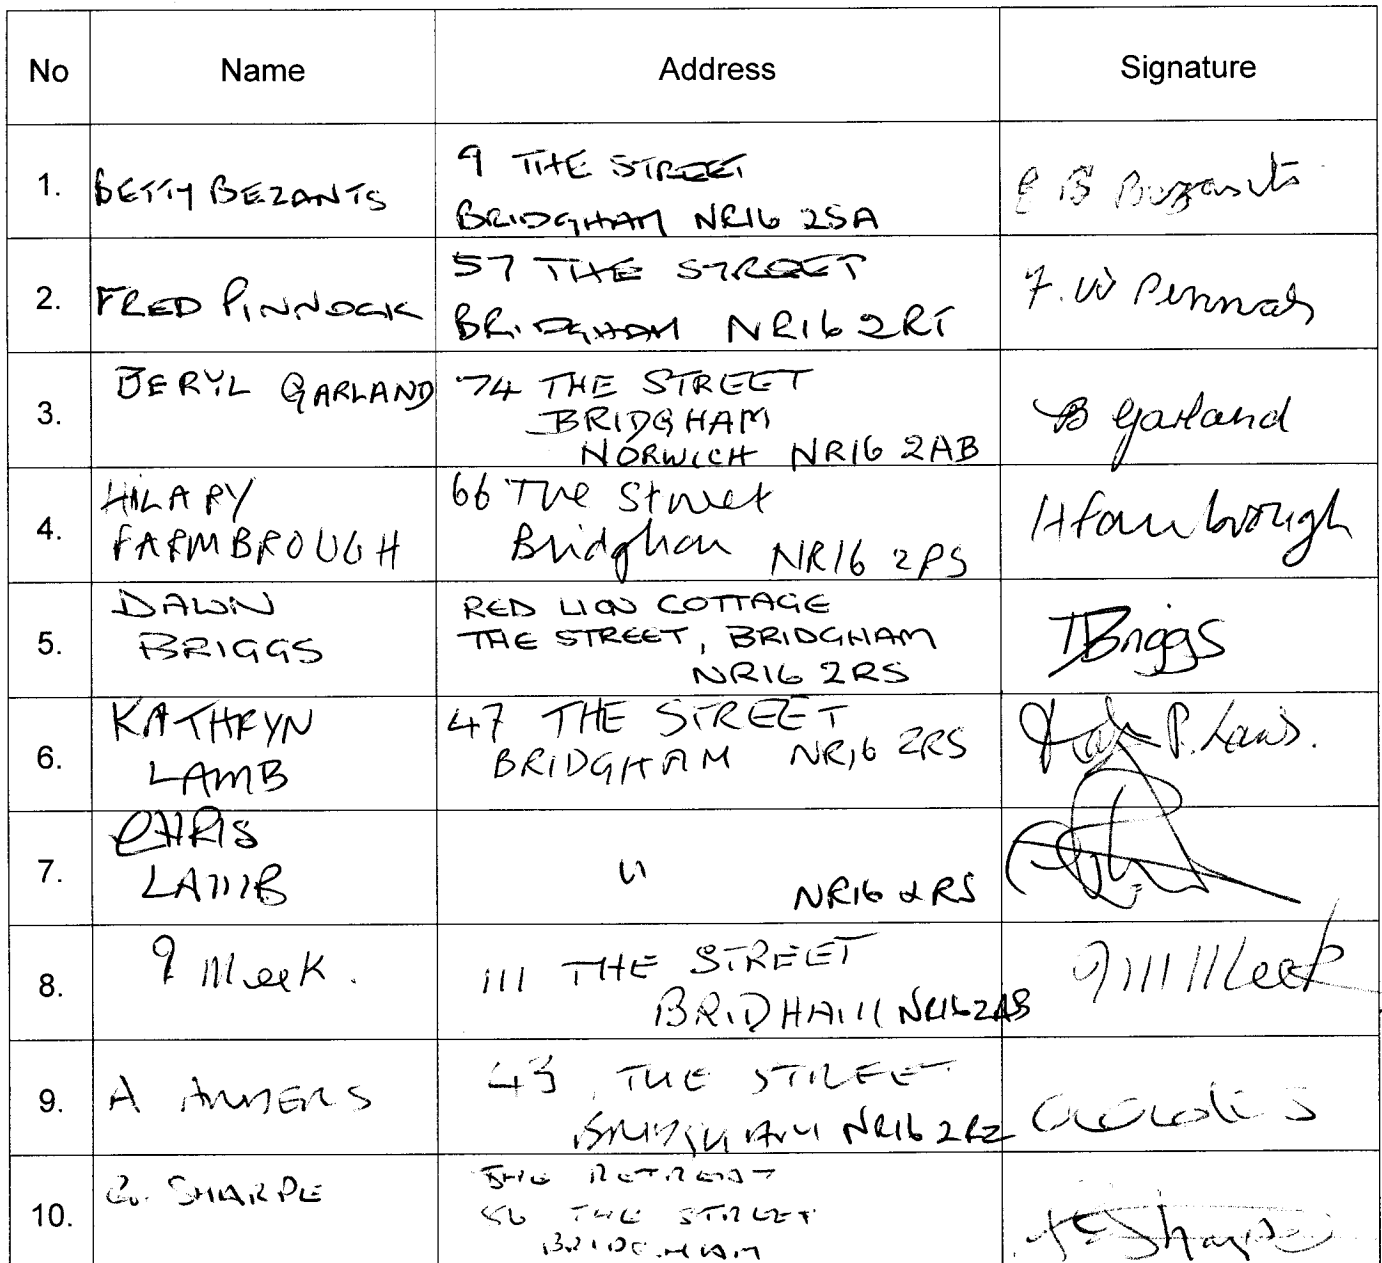 No Name Address Signature
1. BETTY BEZANTS 9 THE STREET
BRIDGHAM NR16 2SA
E B Bezants
2. FRED PINNOCK 57 THE STREET
BRIDGHAM NR16 2RT
F. W Pinnock
3. BERYL GARLAND 74 THE STREET
BRIDGHAM
NORWICH NR16 2AB
B Garland
4. HILARY
FARMBROUGH
66 The Street
Bridgham NR16 2RS
H Farmbrough
5. DAWN
BRIGGS
RED LION COTTAGE
THE STREET, BRIDGHAM
NR16 2RS
D Briggs
6. KATHRYN
LAMB
47 THE STREET
BRIDGHAM NR16 2RS
P. Lamb.
7. CHRIS
LAMB
"
NR16 2RS
8. Meek. 111 THE STREET
BRIDHAM NR16 2AB
Meek
9. A 43 THE STREET
BRIDGHAM NR16 2RZ
10. G. SHARPE THE RETREAT
56 THE STREET
BRIDGHAM
Sharpe